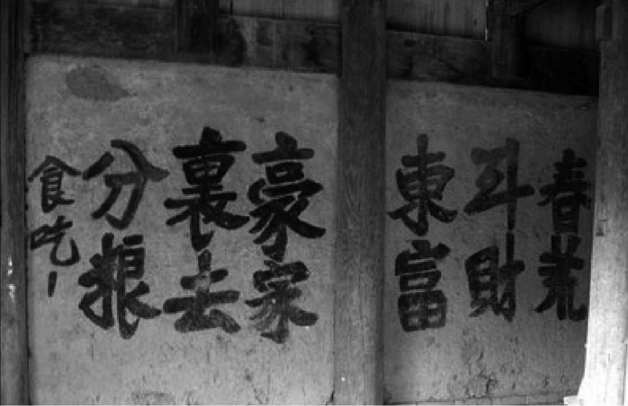 春荒
到財
東富
豪家
裏去
分粮
食吃！